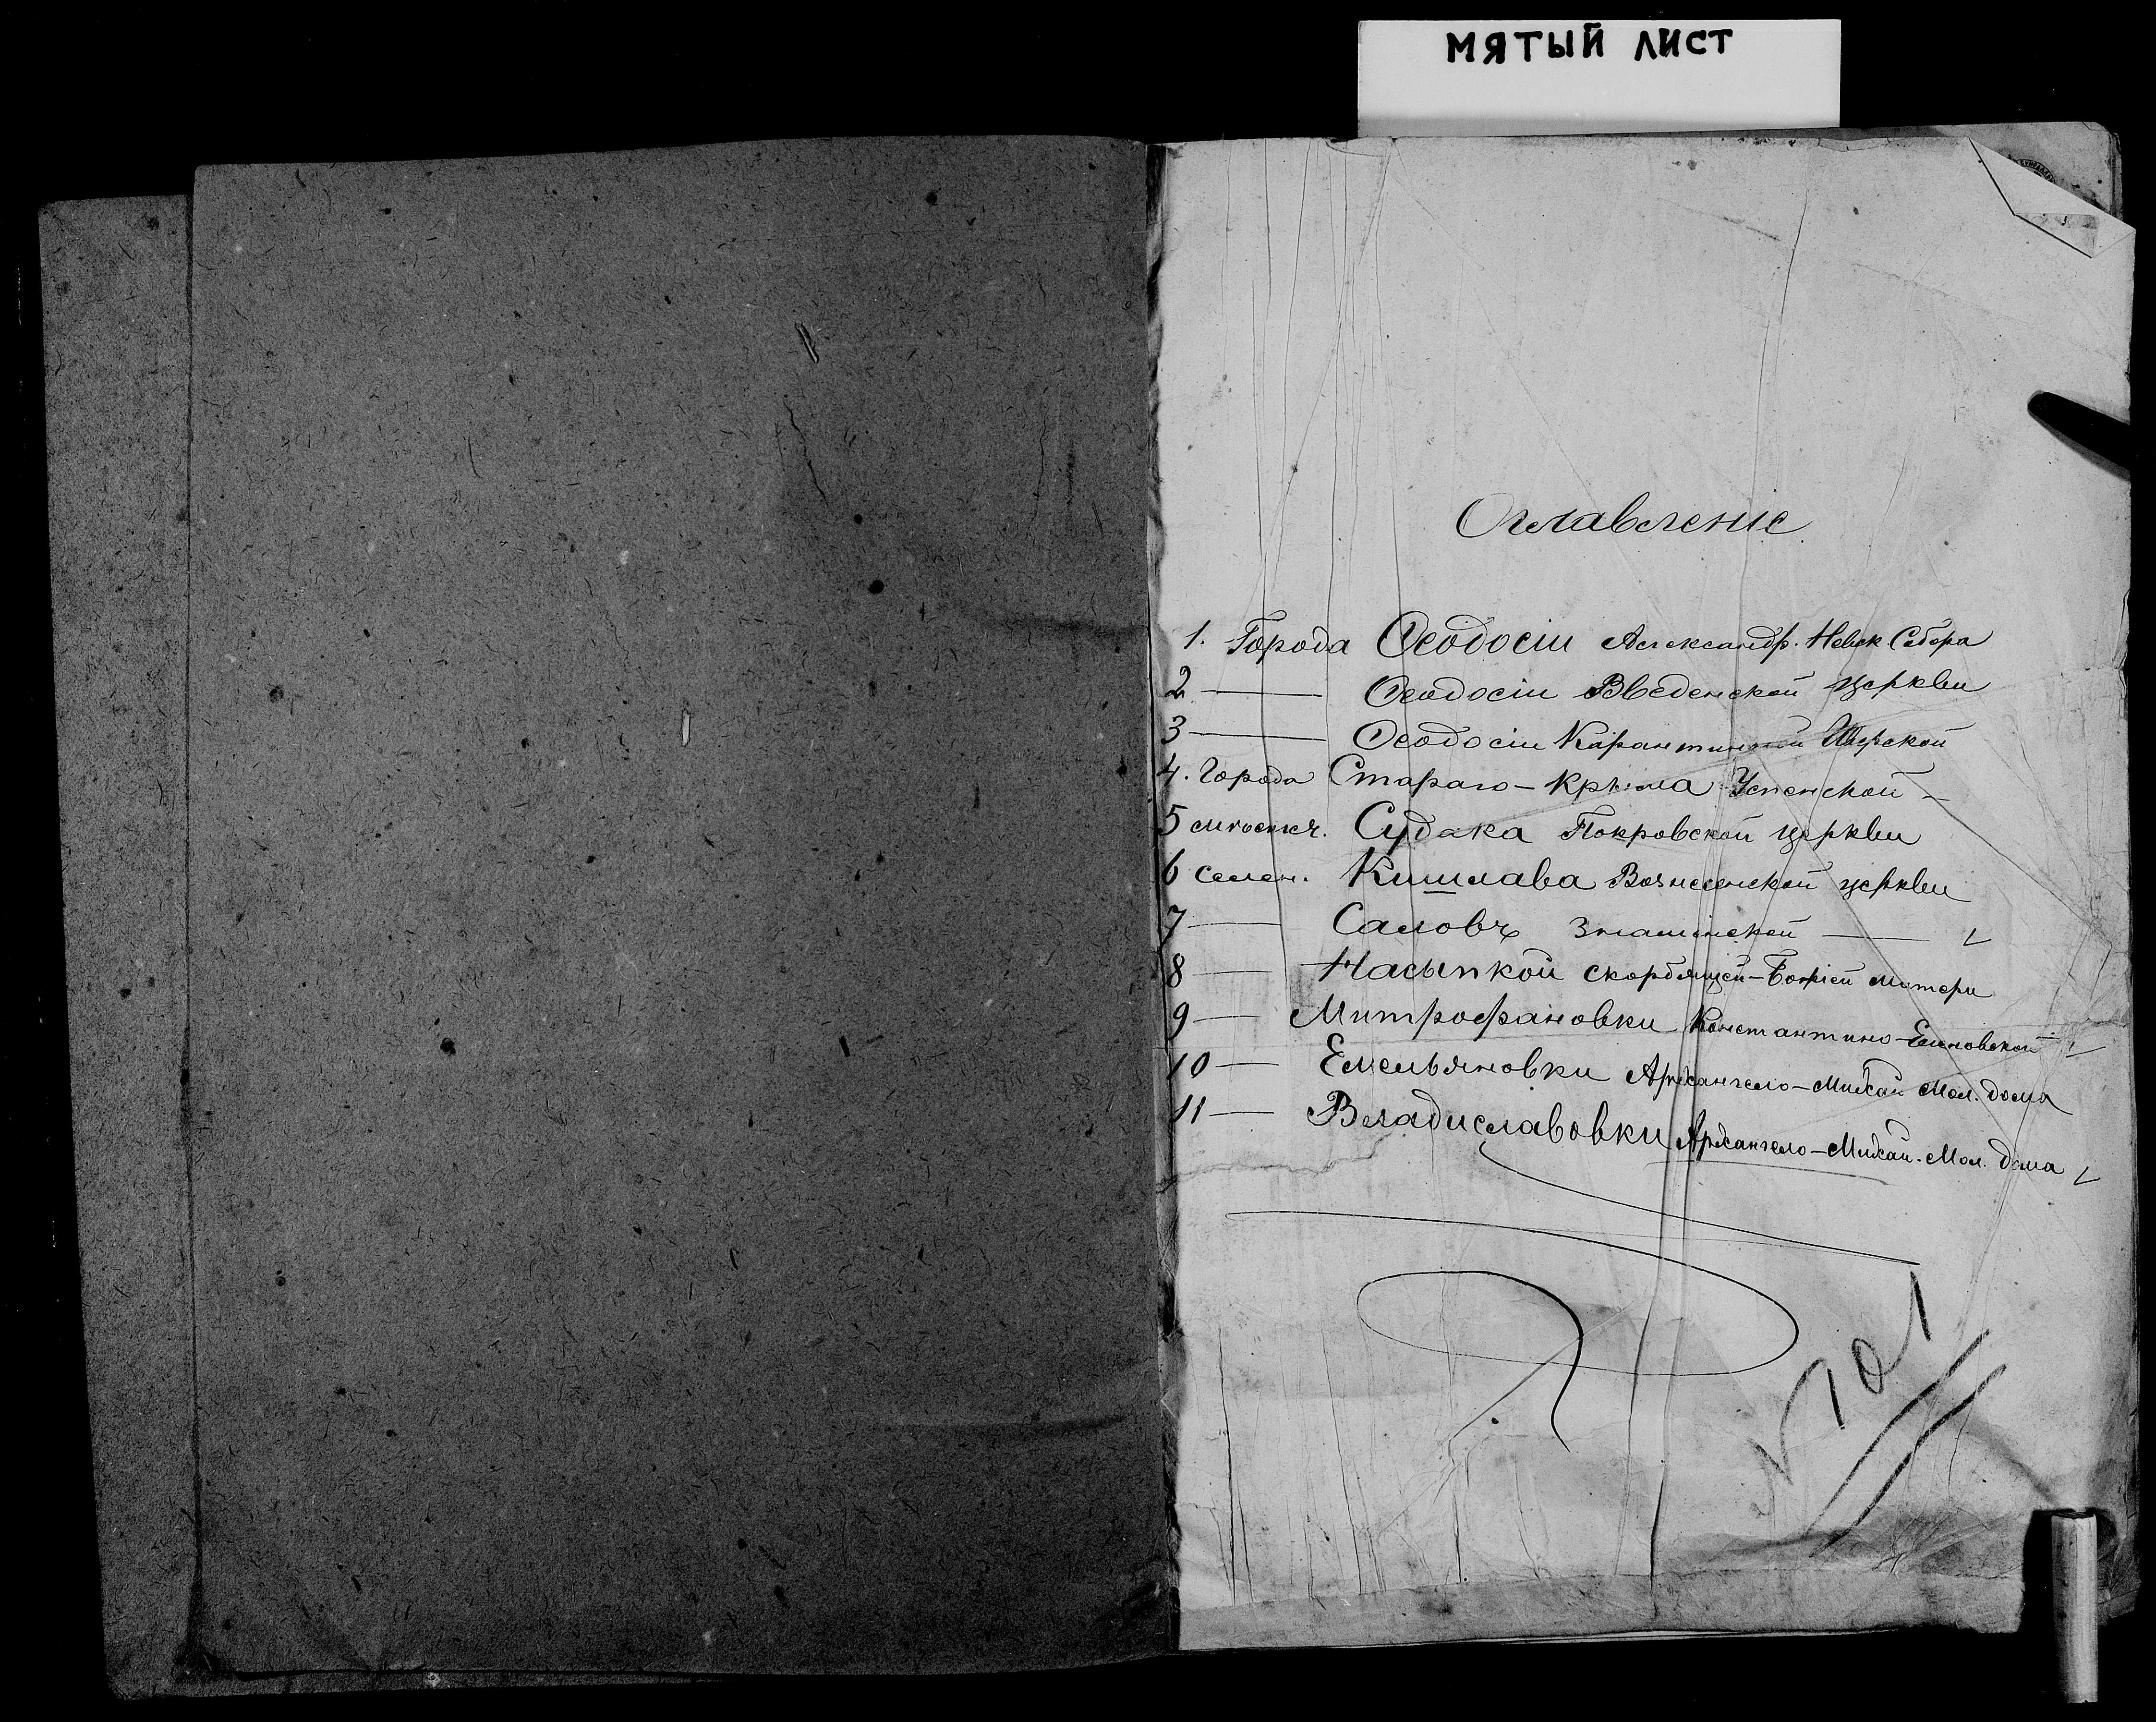 МЯТЫЙ ЛИСТ
Оглавленіе
1. Города Ѳеодосіи Александр. Невск. Собора
2 — Ѳеодосіи Введенской церкви
3 — Ѳеодосіи Карантинной
4. Города Стараго-Крыма Успенской —
5 мѣстеч. Судака Покровской церкви
6 селен. Кишлава Вознесенской церкви
7 — Саловъ Знаменской —
8 — Насыпкой Скорбящей-Божіей Матери
9 — Митрофановки Константино-Еленовской —
10 — Емельяновки Архангело-Михай Мол. дома
11 — Владиславовки Архангело-Михай. Мол. дома
№ 101